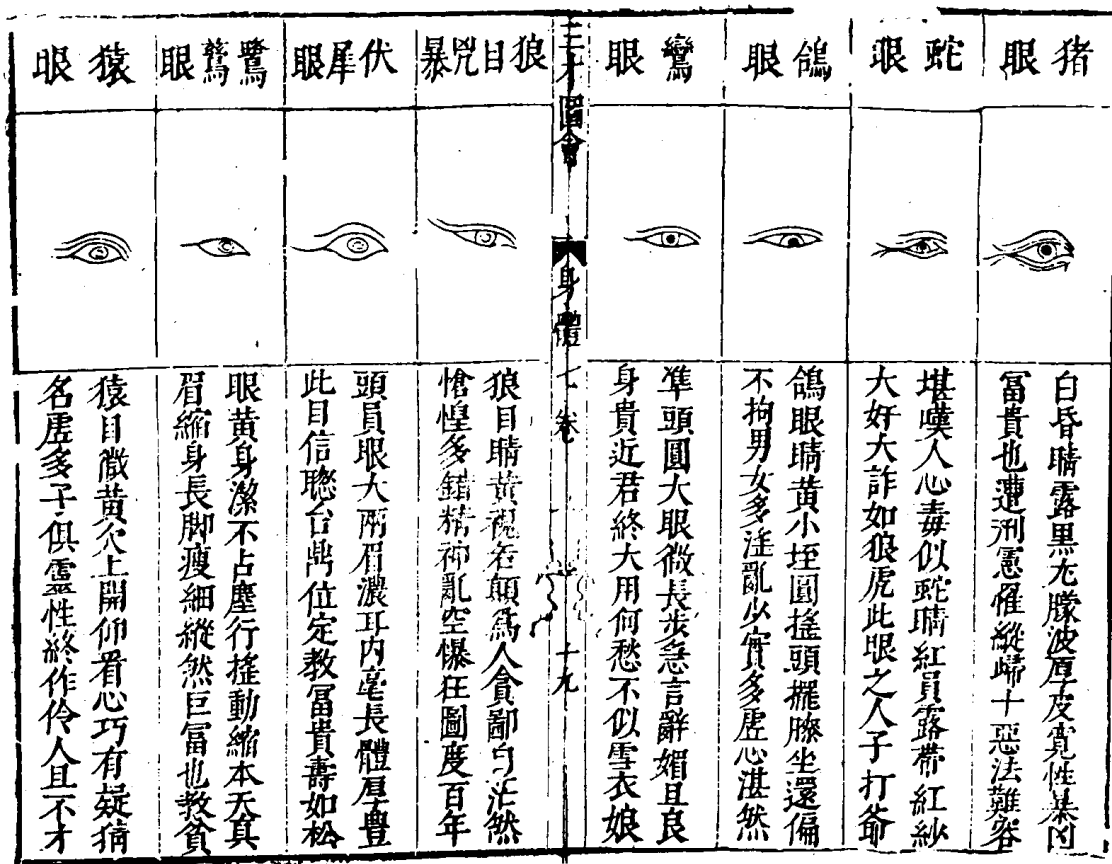 猪眼
白昏睛露黒尤朦波厚皮寛性暴凶
冨貴也遭刑憲罹縱歸十惡法難容
蛇眼
堪嘆人心毒似蛇睛紅員露帶紅紗
大奸大詐如狼虎此眼之人子打爺
鴿眼
鴿眼睛黄小垤圓搖頭擺膝坐還偏
不拘男女多淫亂少實多虛心湛然
鸞眼
凖頭圓大眼微長步急言辭媚且良
身貴近君終大用何愁不似雪衣娘
三才圖會
身體七卷
十九
狼目兇暴
狼目睛黄視若顛爲人貪鄙自茫然
愴惶多錯精神亂空懆狂圖度百年
伏犀眼
頭員眼大兩眉濃耳内毫長體厚豊
此目信聰台鼎位定教冨貴壽如松
鷺鷥眼
眼黄身潔不占塵行搖動縮本天真
眉縮身長脚瘦細縱然巨冨也教貧
猿眼
猿目微黄欠上開仰看心巧有疑猜
名虛多子俱靈性終作伶人且不才